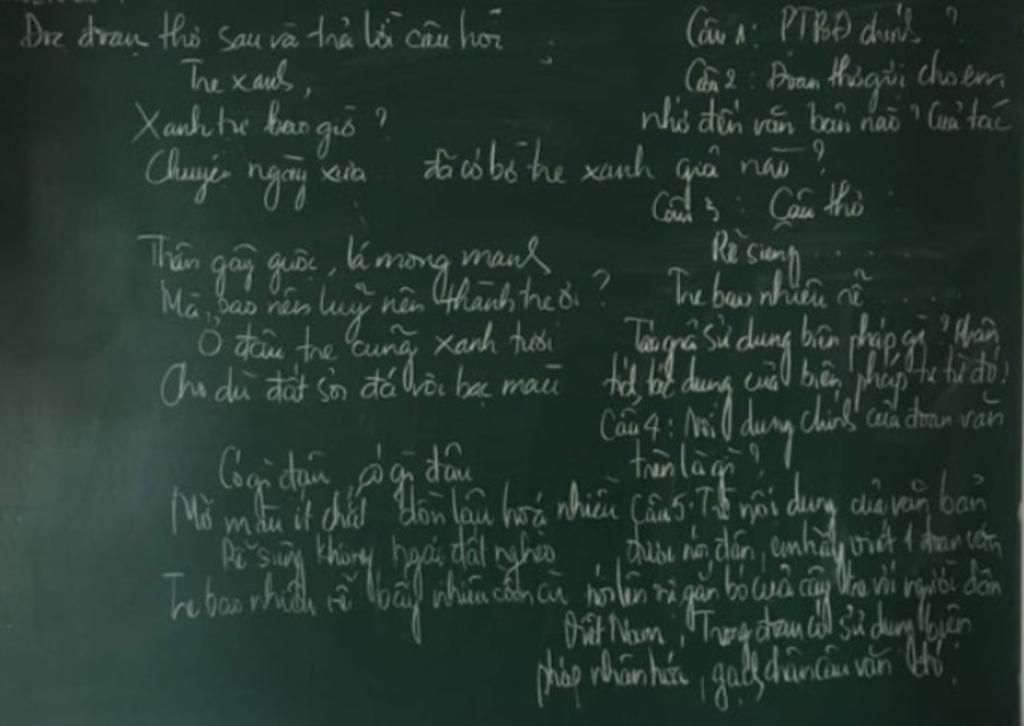 Đọc đoạn thơ sau và trả lời câu hỏi :
Tre xanh,
Xanh tự bao giờ ?
Chuyện ngày xưa đã có bờ tre xanh
Thân gầy guộc, lá mong manh
Mà bao nên luỹ nên thành tre ơi ?
Ở đâu tre cũng xanh tươi
Cho dù đất sỏi đá vôi bạc màu
Có gì đâu có gì đâu
Mỡ màu ít chất dồn lâu hoá nhiều
Rễ siêng không ngại đất nghèo
Tre bao nhiêu rễ bấy nhiêu cần cù
Câu 1: PTBĐ chính ?
Câu 2: Đoạn thơ gợi cho em
nhớ đến văn bản nào ? Của tác
giả nào ?
Câu 3 : Câu thơ
Rễ siêng .....
Tre bao nhiêu rễ .....
Tác giả sử dụng biện pháp gì ? Phân
tích tác dụng của biện pháp tu từ đó !
Câu 4: Nội dung chính của đoạn văn
trên là gì ?
Câu 5: Từ nội dung của văn bản
em hãy viết 1 đoạn văn
nói lên sự gắn bó của cây tre với người dân
Việt Nam, Trong đoạn có sử dụng biện
pháp nhân hóa, gạch chân câu văn đó